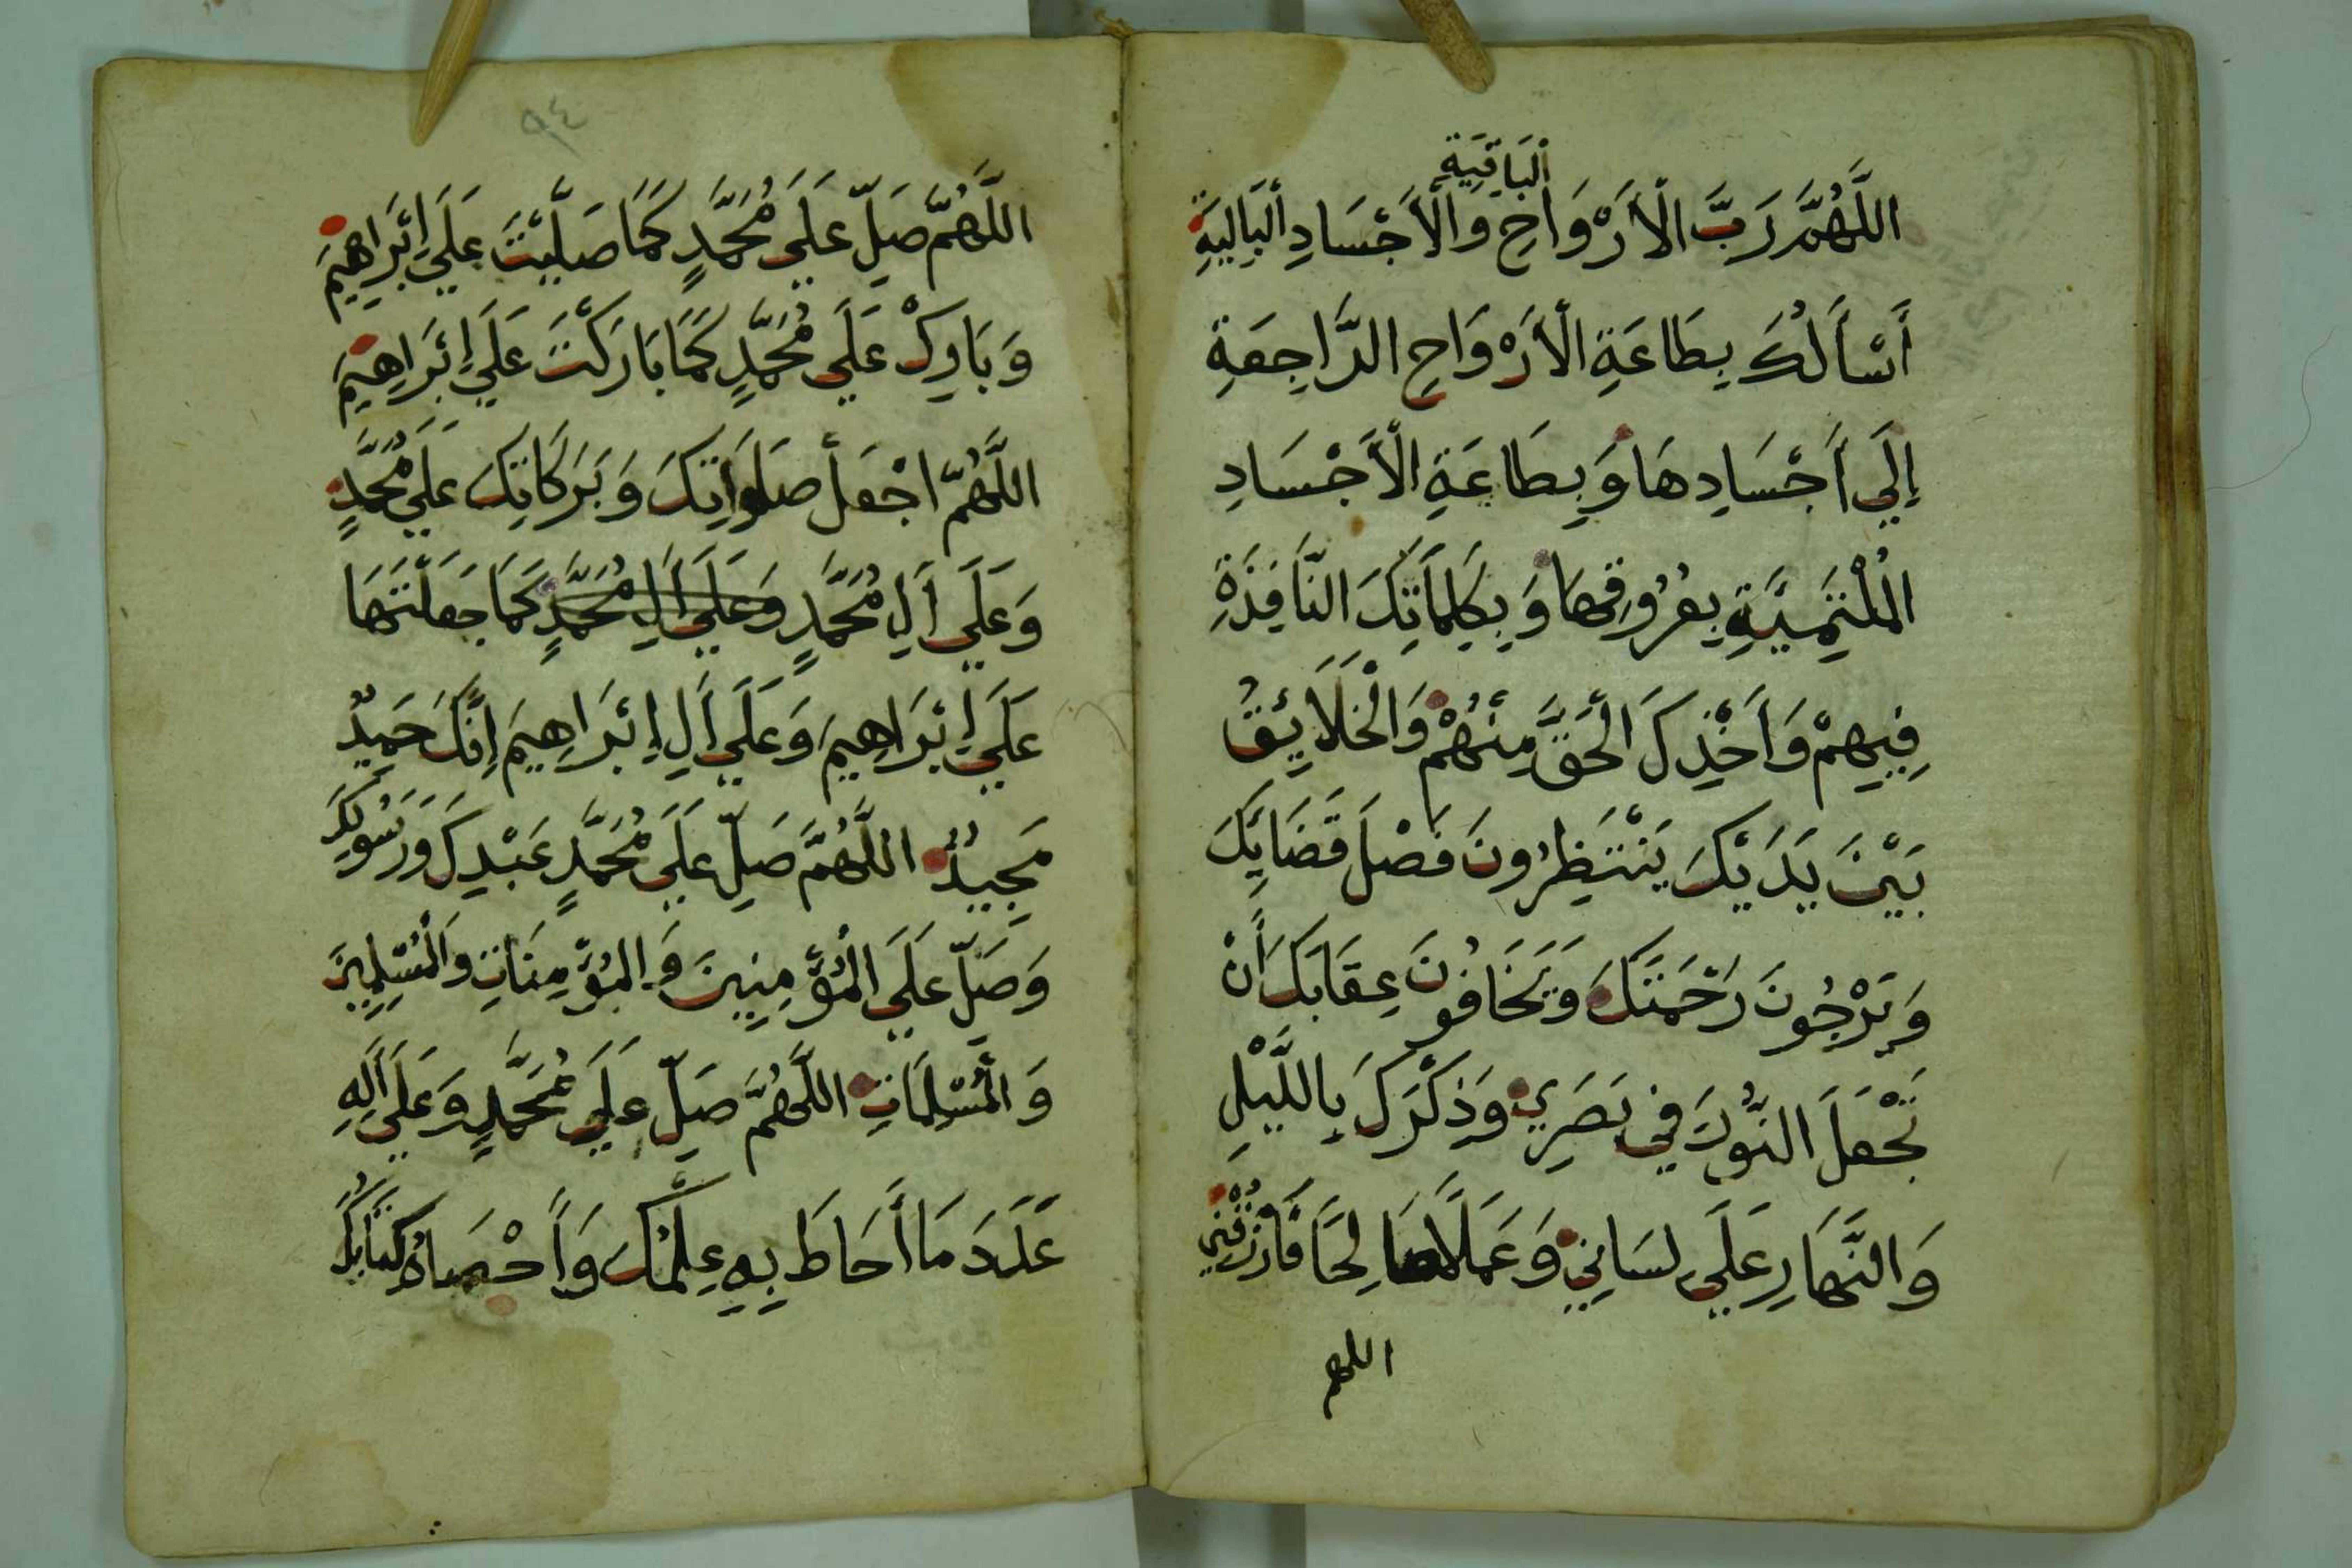 الباقية
اللَّهُمَّ رَبَّ الْأَرْوَاحِ وَالْأَجْسَادِ الْبَالِيَةِ
أَسْأَلُكَ بِطَاعَةِ الْأَرْوَاحِ الرَّاجِعَةِ
إِلَى أَجْسَادِهَا وَبِطَاعَةِ الْأَجْسَادِ
الْمُلْتَئِمَةِ بِعُرُوقِهَا وَبِكَلِمَاتِكَ النَّافِذَةِ
فِيهِمْ وَأَخْذِكَ الْحَقَّ مِنْهُمْ وَالْخَلَائِقُ
بَيْنَ يَدَيْكَ يَنْتَظِرُونَ فَصْلَ قَضَائِكَ
وَيَرْجُونَ رَحْمَتَكَ وَيَخَافُونَ عِقَابَكَ أَنْ
تَجْعَلَ النُّورَ فِي بَصَرِي وَذِكْرَكَ بِاللَّيْلِ
وَالنَّهَارِ عَلَى لِسَانِي وَعَمَلًا صَالِحًا فَارْزُقْنِي
اللهم
٩٤
اللَّهُمَّ صَلِّ عَلَى مُحَمَّدٍ كَمَا صَلَّيْتَ عَلَى إِبْرَاهِيمَ
وَبَارِكْ عَلَى مُحَمَّدٍ كَمَا بَارَكْتَ عَلَى إِبْرَاهِيمَ
اللَّهُمَّ اجْعَلْ صَلَوَاتِكَ وَبَرَكَاتِكَ عَلَى مُحَمَّدٍ
وَعَلَى أَلِ مُحَمَّدٍ وَعَلَى أَلِ مُحَمَّدٍ كَمَا جَعَلْتَهَا
عَلَى إِبْرَاهِيمَ وَعَلَى أَلِ إِبْرَاهِيمَ إِنَّكَ حَمِيدٌ
مَجِيدٌ اللَّهُمَّ صَلِّ عَلَى مُحَمَّدٍ عَبْدِكَ وَرَسُولِكَ
وَصَلِّ عَلَى الْمُؤْمِنِينَ وَالْمُؤْمِنَاتِ وَالْمُسْلِمِينَ
وَالْمُسْلِمَاتِ اللَّهُمَّ صَلِّ عَلَى مُحَمَّدٍ وَعَلَى أَلِهِ
عَدَدَ مَا أَحَاطَ بِهِ عِلْمُكَ وَأَحْصَاهُ كِتَابُكَ